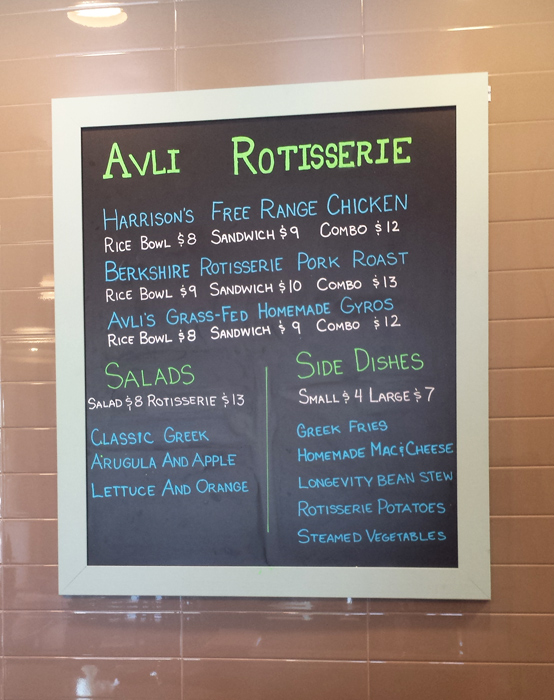 AVLI ROTISSERIE
HARRISON'S FREE RANGE CHICKEN
RICE BOWL $8 SANDWICH $9 COMBO $12
BERKSHIRE ROTISSERIE PORK ROAST
RICE BOWL $9 SANDWICH $10 COMBO $13
AVLI'S GRASS-FED HOMEMADE GYROS
RICE BOWL $8 SANDWICH $9 COMBO $12
SALADS
SALAD $8 ROTISSERIE $13
CLASSIC GREEK
ARUGULA AND APPLE
LETTUCE AND ORANGE
SIDE DISHES
SMALL $4 LARGE $7
GREEK FRIES
HOMEMADE MAC & CHEESE
LONGEVITY BEAN STEW
ROTISSERIE POTATOES
STEAMED VEGETABLES